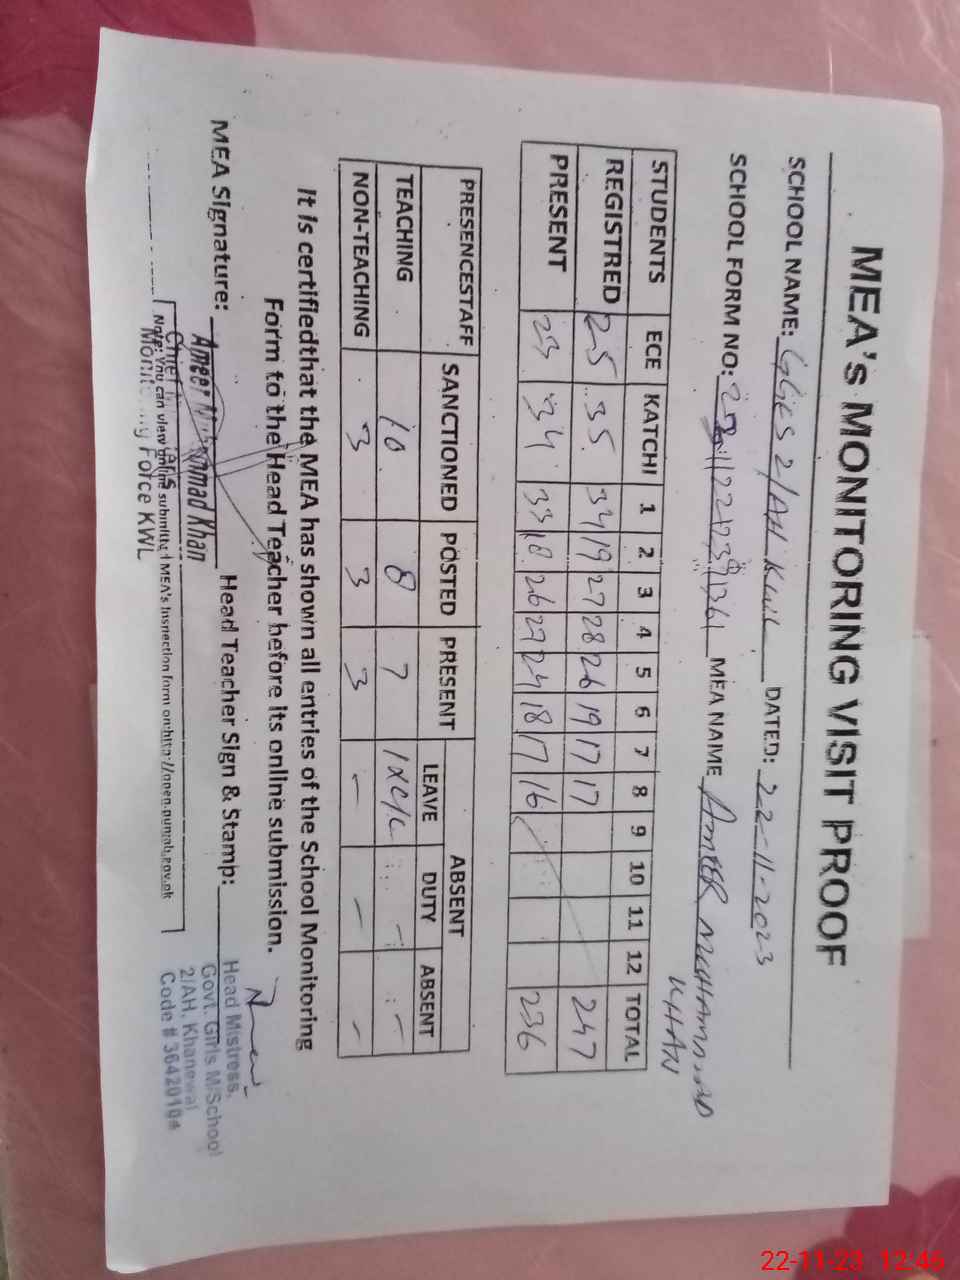 MEA's MONITORING VISIT PROOF
SCHOOL NAME: GGES 2/AH KWL DATED: 22-11-2023
SCHOOL FORM NO: MEA NAME AMEER MUHAMMAD
KHAN
STUDENTS ECE KATCHI 1 2 3 4 5 6 7 8 9 10 11 12 TOTAL
REGISTRED 25 35 34 19 27 28 26 19 17 17 247
PRESENT 23 34 33 18 26 27 24 18 17 16 236
PRESENCESTAFF SANCTIONED POSTED PRESENT ABSENT
LEAVE DUTY ABSENT
TEACHING 10 8 7 - -
NON-TEACHING 3 3 3 - - -
It is certifiedthat the MEA has shown all entries of the School Monitoring
Form to the Head Teacher before its online submission.
MEA Signature: Head Teacher Sign & Stamp:
Ameer Muhammad Khan
Monitoring Force KWL
Note: You can view online submitted MEA's Inspection form on:http://open.punjab.gov.pk
Head Mistress,
Govt. Girls M/School
2/AH, Khanewal
Code #
22-11-23 12:46